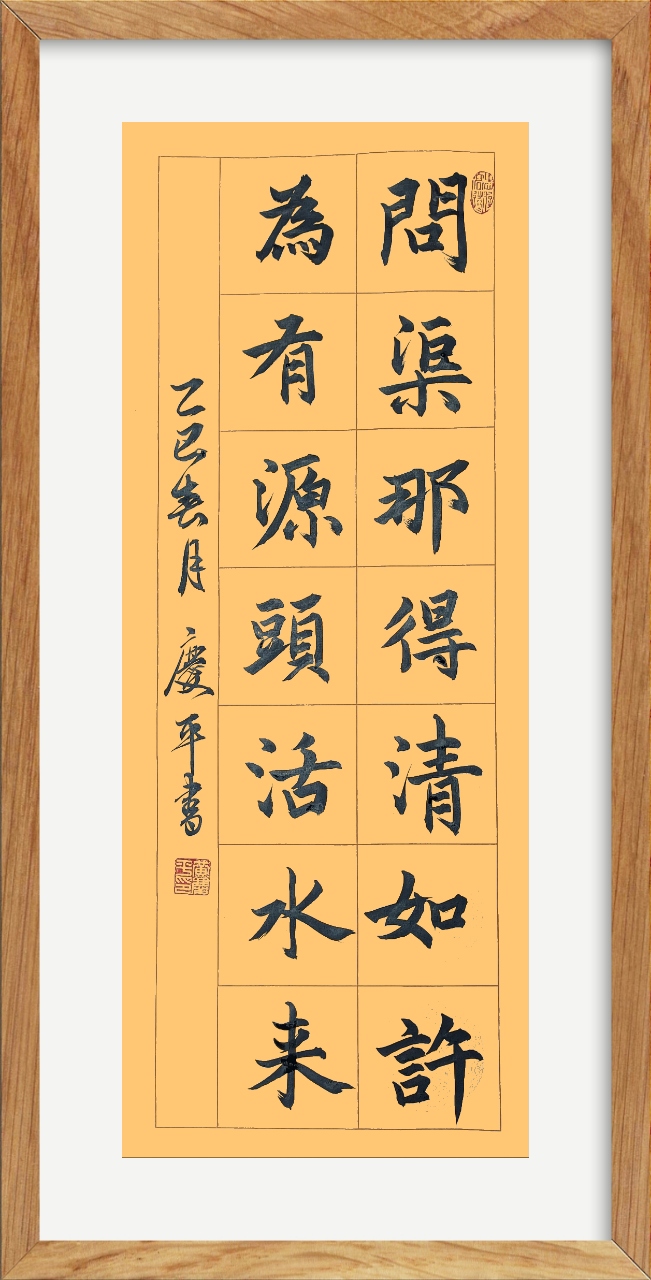 問渠那得清如許
為有源頭活水来
乙巳春月 慶平書